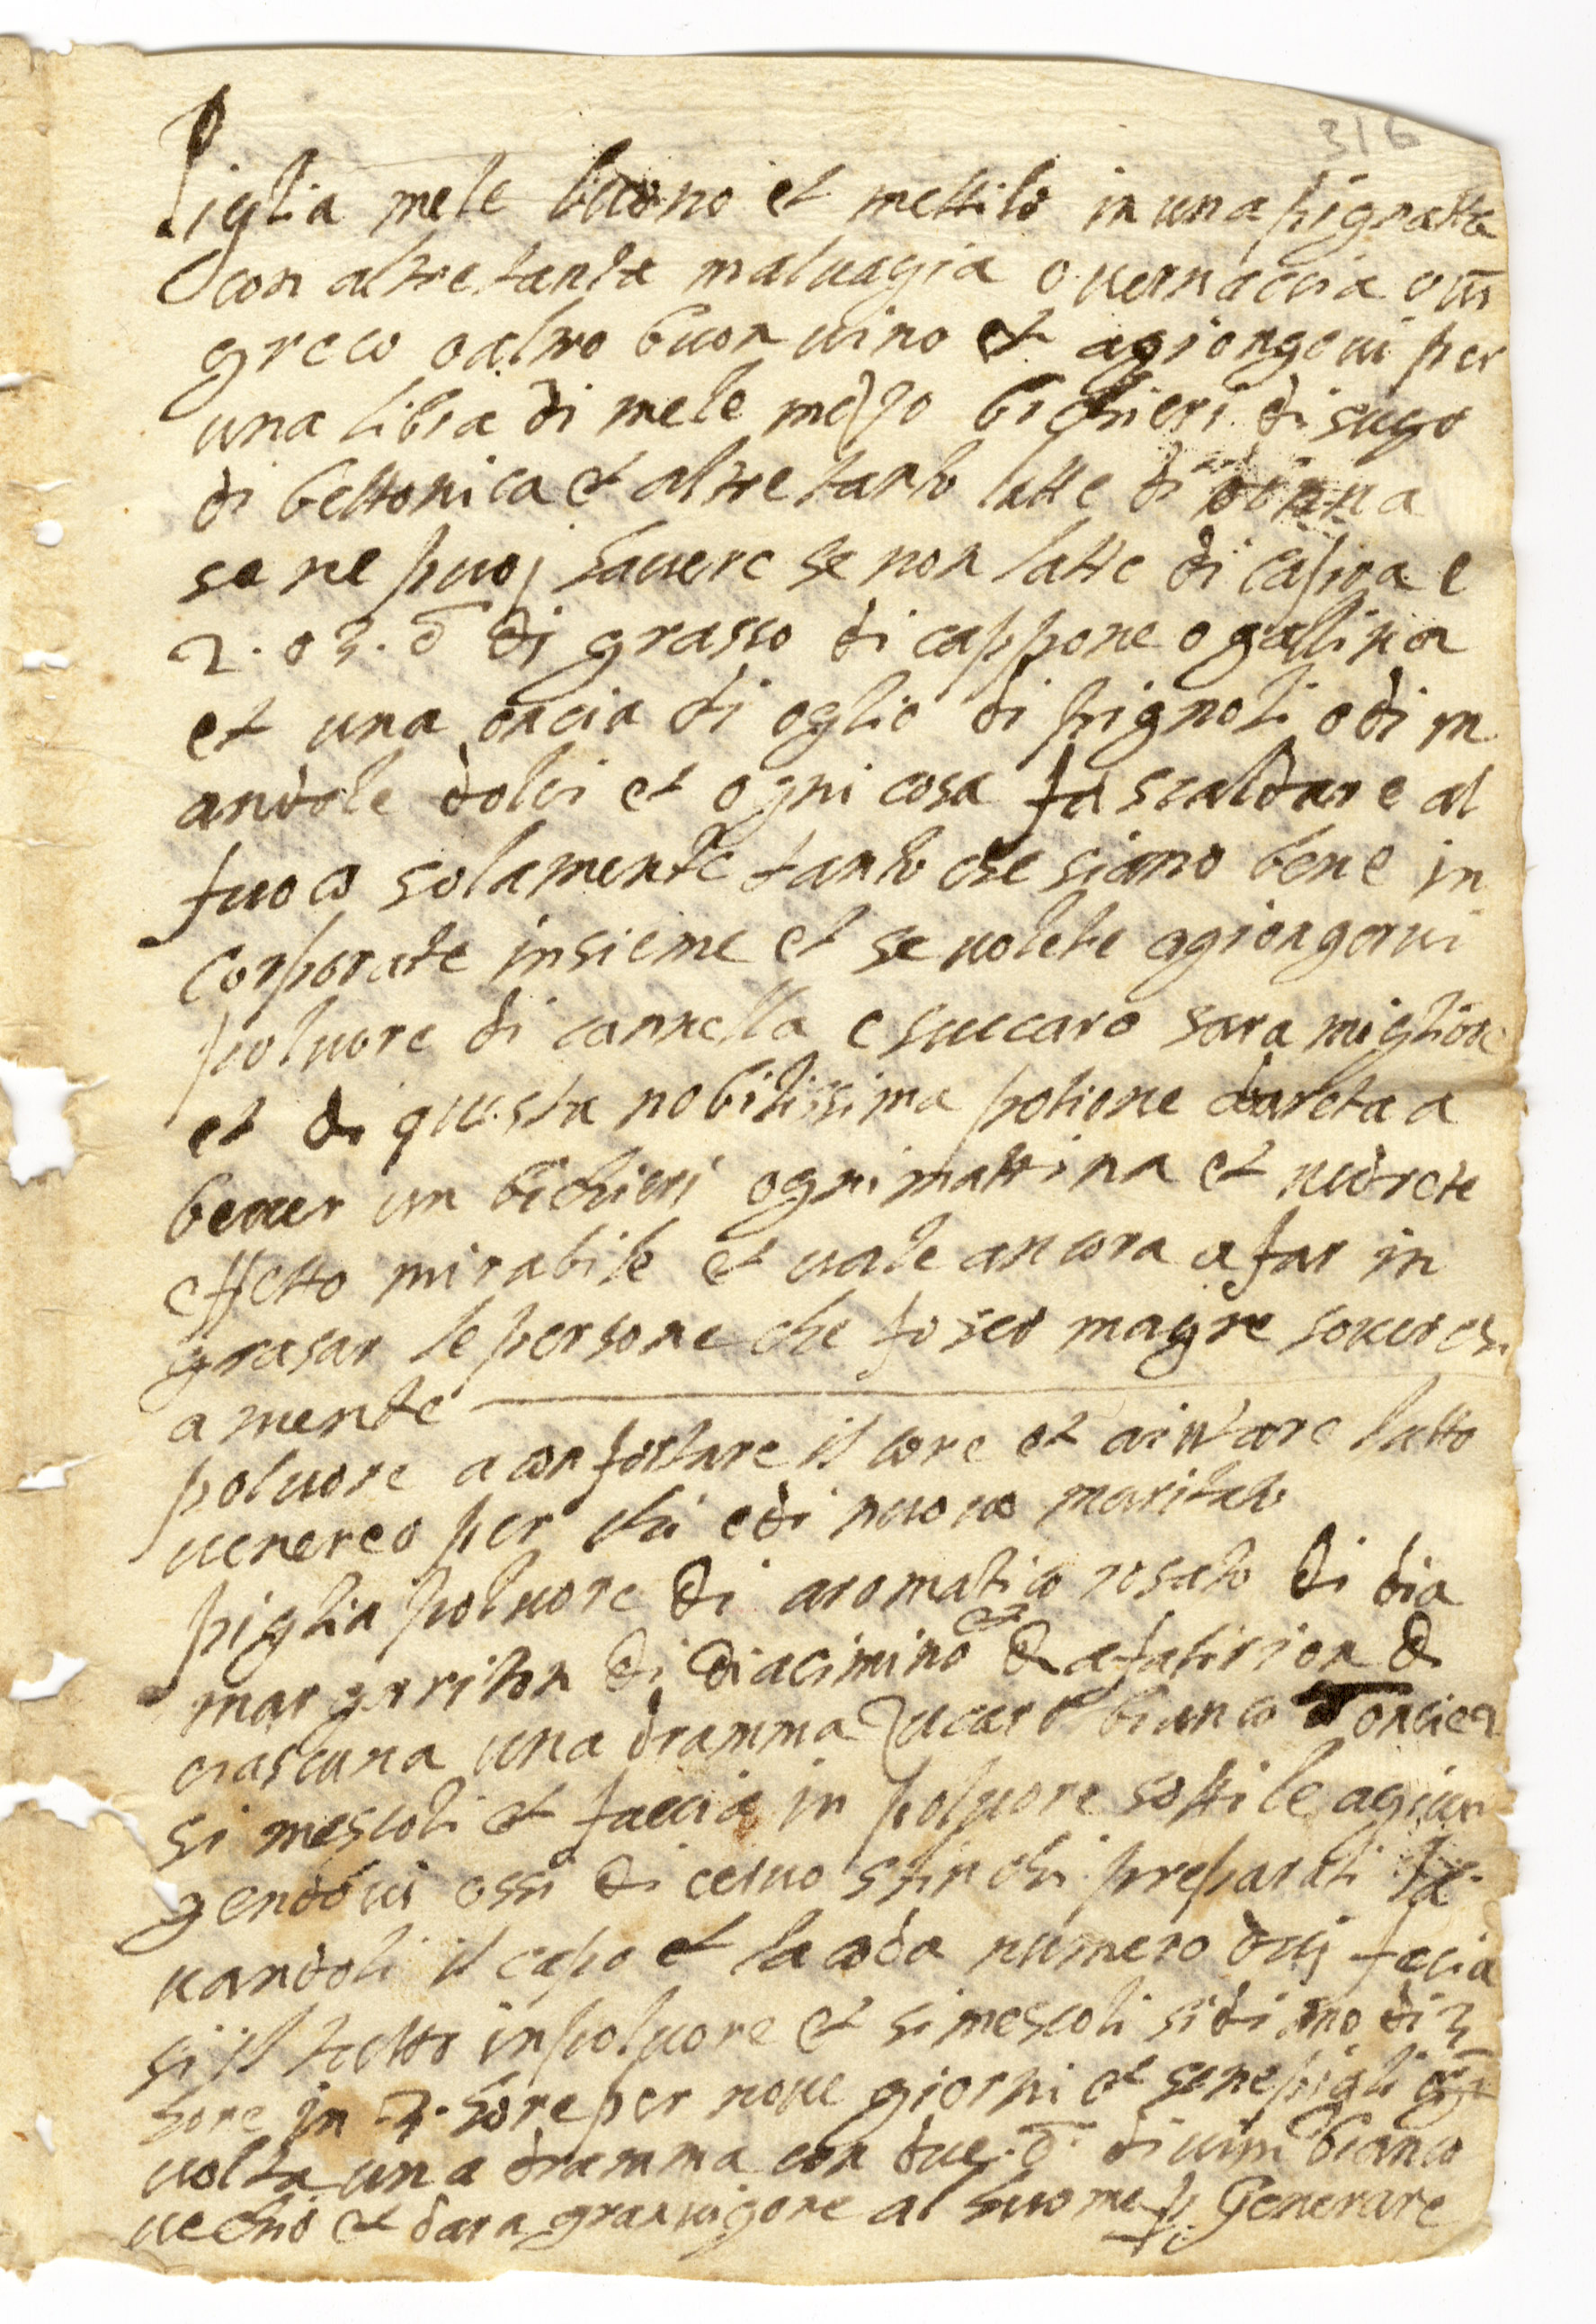 316
Piglia mele buono et mettilo in una pignatta
con altretanta maluagia o uernaccia o uī
greco o altro buon uino et agiongeui per
una libra di mele mezo bichieri di sugo
di bettonica et altre tanto latte di donna
se ne puoj hauere se non latte di capra e
2. o 3. ō di grasso di cappone o gallina
et una oncia di oglio di pignoli o di m
andole dolci et ogni cosa fa scaldare al
fuoco solamente tanto che siano bene in
corporate insieme et se uolete agiongerui
poluore di cannella e succaro sara migliore
et di questa nobilissima potione daretta a
beuer un bichieri ogni mattina et uedrete
effetto mirabile et uale ancora a far in
grasar le persone che foseo magre
amente
poluore a confortare il core et aiutare latto
uenereo per chi e di nuouo maritato
piglia poluore di aromatico rosato di dia
margariton di diacimino et di
ciascuna una dramma zucaro bianco oncie 2
si mescoli et faccia in poluore sottile agiun
gendoui ossi di ceruo stinchi preparati le
uandoli il capo et la coda numero doij facia
si il tutto in poluore et si mescoli si di ano di 3
hore in 3. hore per noue giorni et se ne pigli ogni
uolta una dramma con due ō di uin bianco
uechio et dara gran uigore al huomo Generare